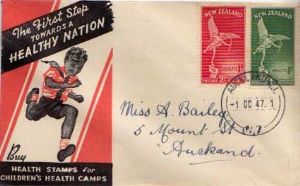 The First Step
TOWARDS A
HEALTHY NATION
Buy
HEALTH STAMPS for
CHILDREN'S HEALTH CAMPS
NEW ZEALAND
NEW ZEALAND
-1 OC 47.1
N.Z
Miss A. Bailey
5 Mount St
Auckand.